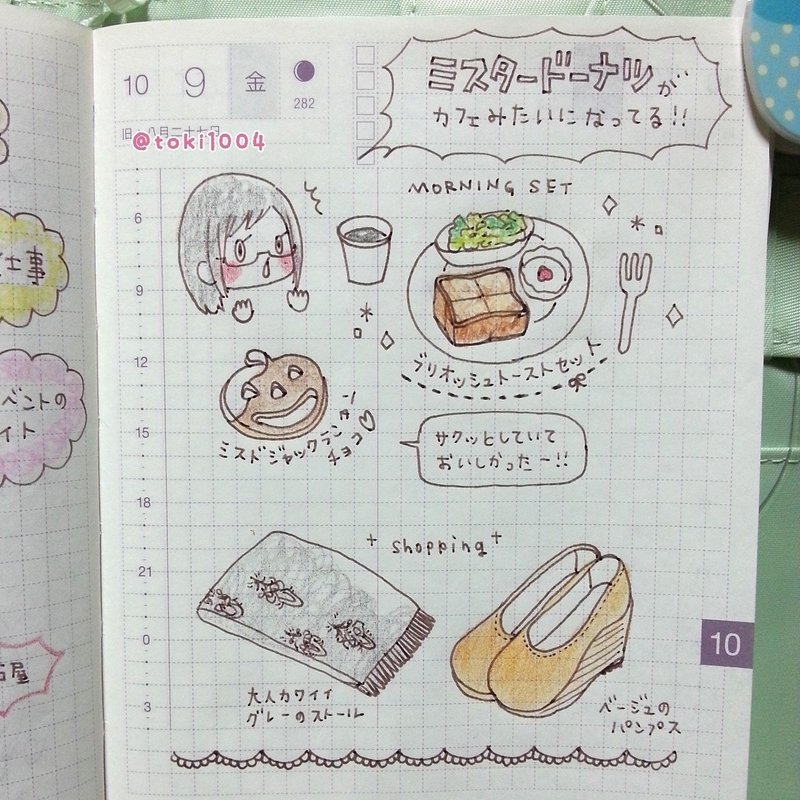 10 9 金
282
旧 八月二十七日
@toki1004
ミスタードーナツが
カフェみたいになってる!!
MORNING SET
ブリオッシュトーストセット
ミスドジャックランタン
チョコ♡
サクッとしていて
おいしかったー!!
+ shopping +
大人カワイイ
グレーのストール
ベージュの
パンプス
6
9
12
15
18
21
0
3
10
仕事
ベントの
イト
屋